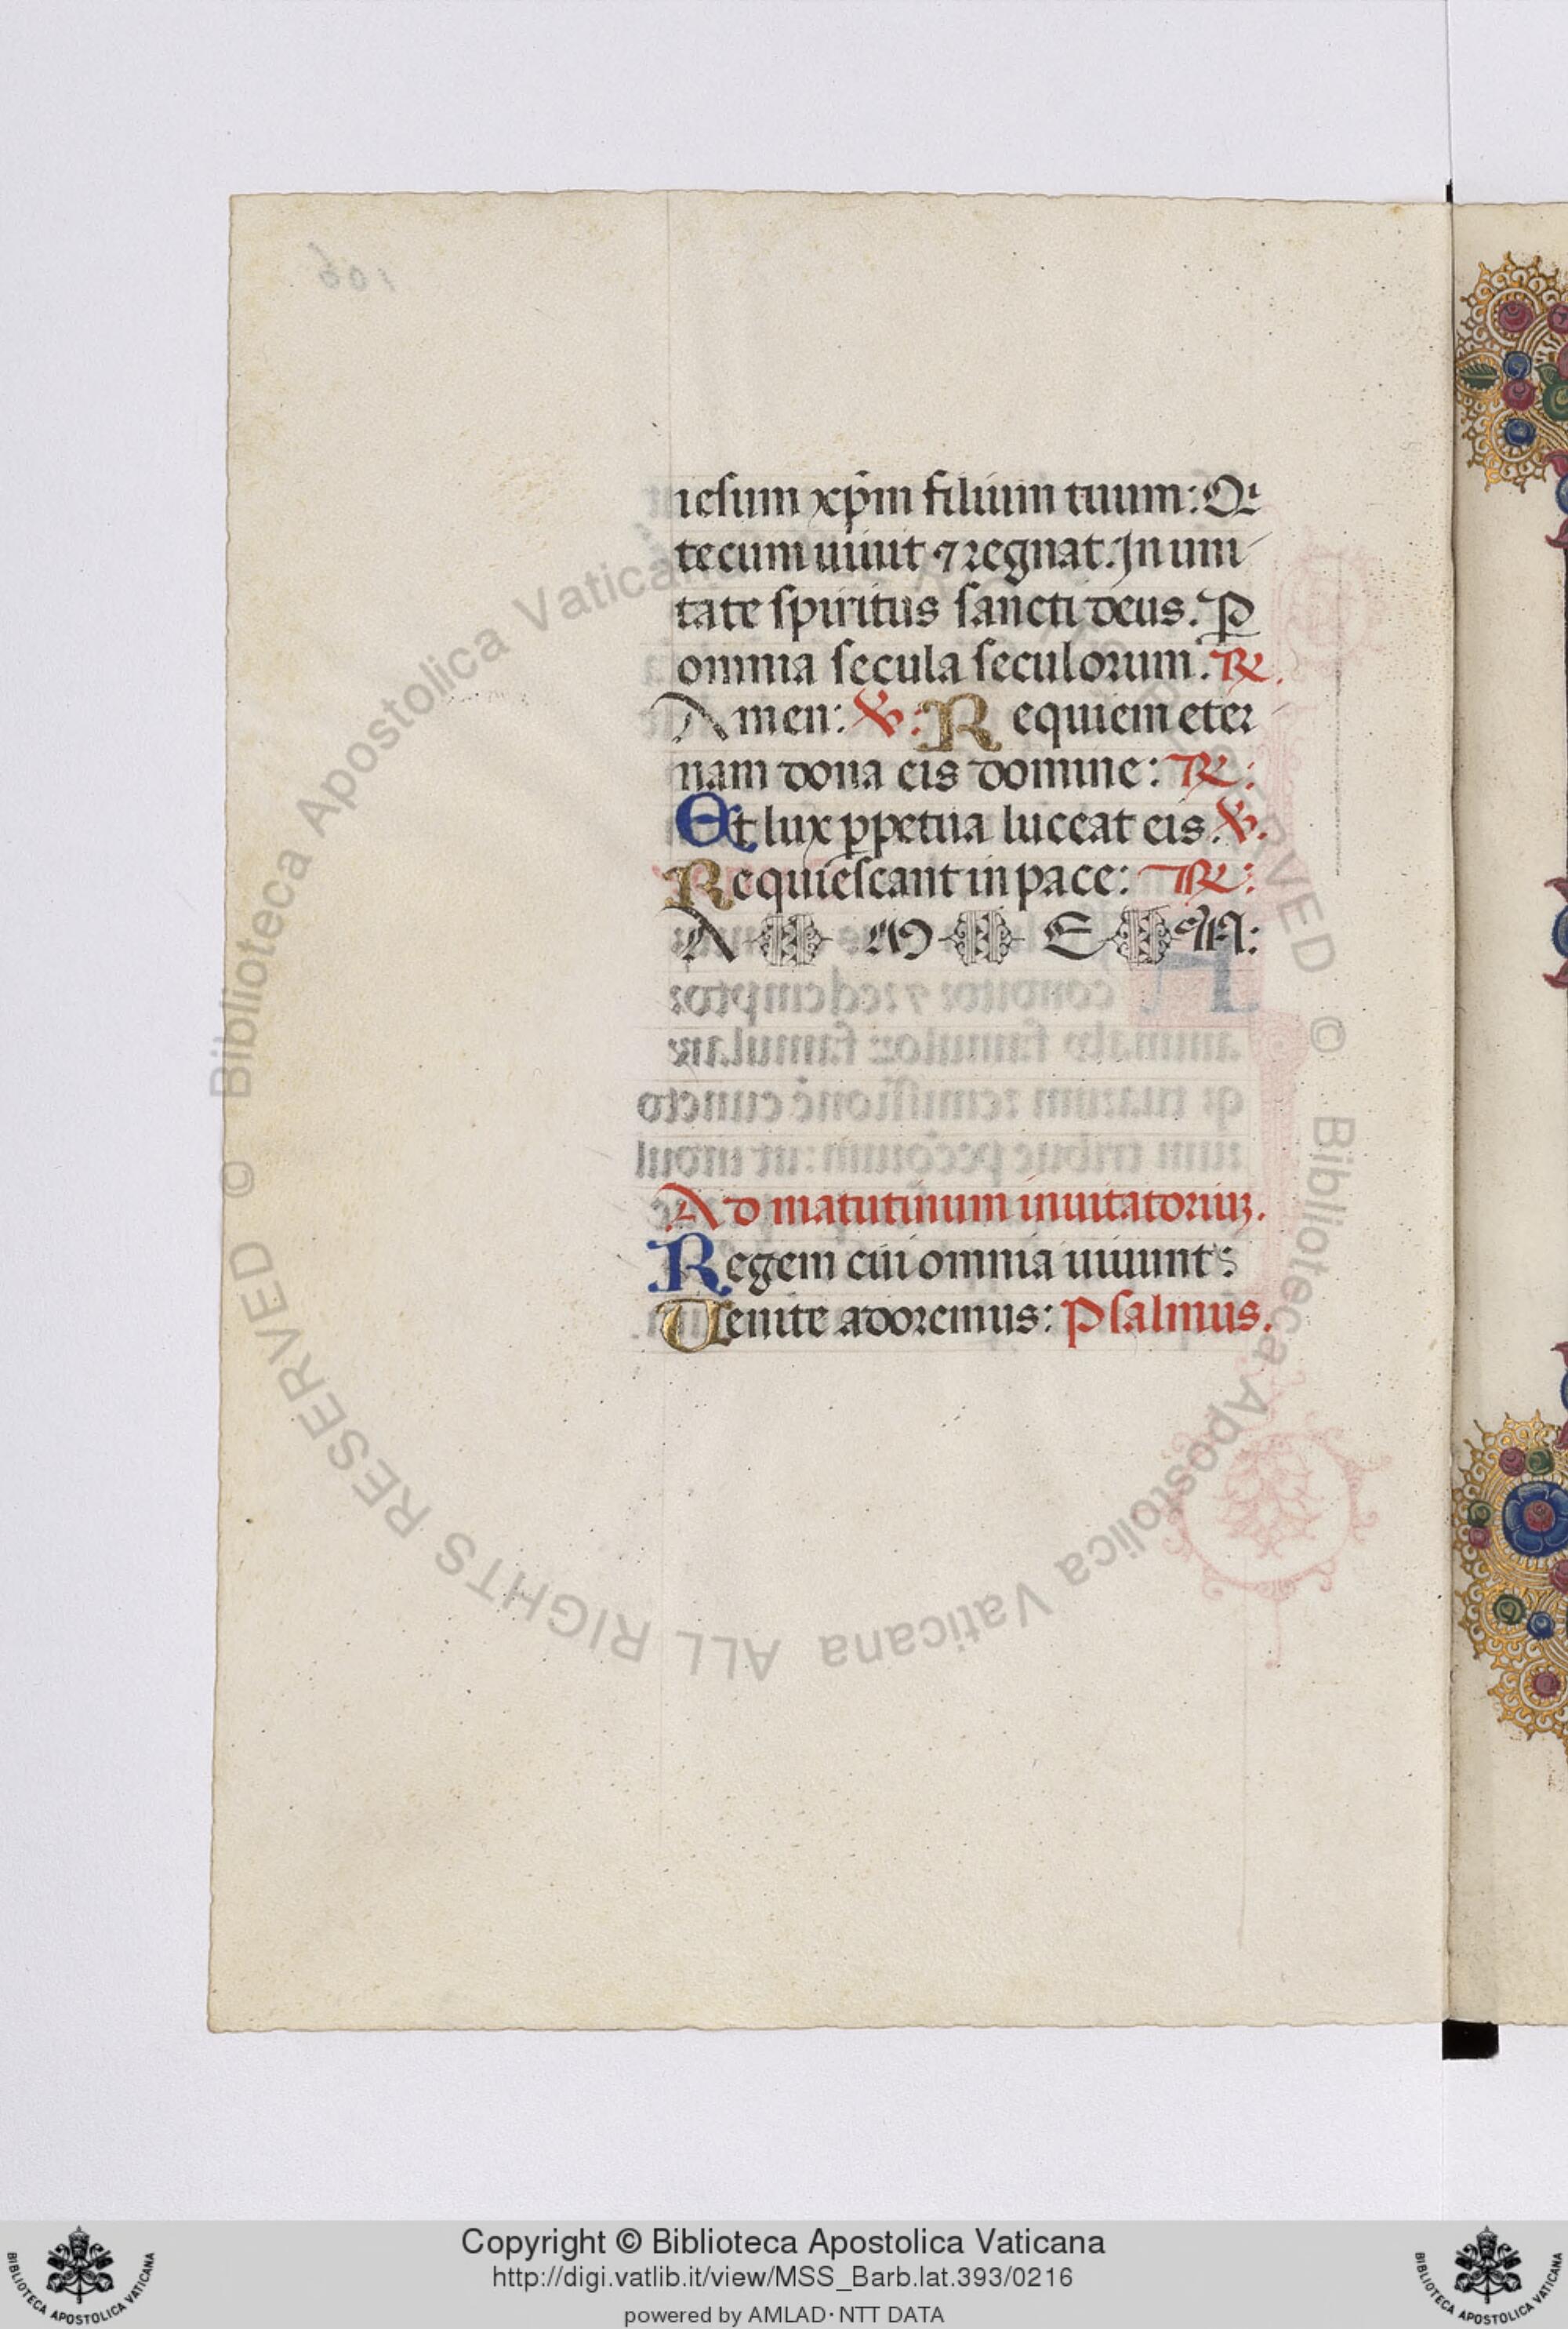 iesum xp̄m filium tuum: Qi
tecum uiuit ⁊ regnat. In uni
tate spiritus sancti deus. P̱
omnia secula seculorum. ℟.
Amen: ℣: Requiem eter
nam dona eis domine: ℟:
Et lux ꝑpetua luceat eis. ℣.
Requiescant in pace: ℟:
A M E N:
Ad matutinum inuitatoriuꝫ.
Regem cui omnia uiuunt:
Uenite adoremus: Psalmus.
© Biblioteca Apostolica Vaticana ALL RIGHTS RESERVED © Biblioteca Apostolica Vaticana ALL RIGHTS RESERVED
Copyright © Biblioteca Apostolica Vaticana
http://digi.vatlib.it/view/MSS_Barb.lat.393/0216
powered by AMLAD·NTT DATA
BIBLIOTECA APOSTOLICA VATICANA
BIBLIOTECA APOSTOLICA VATICANA